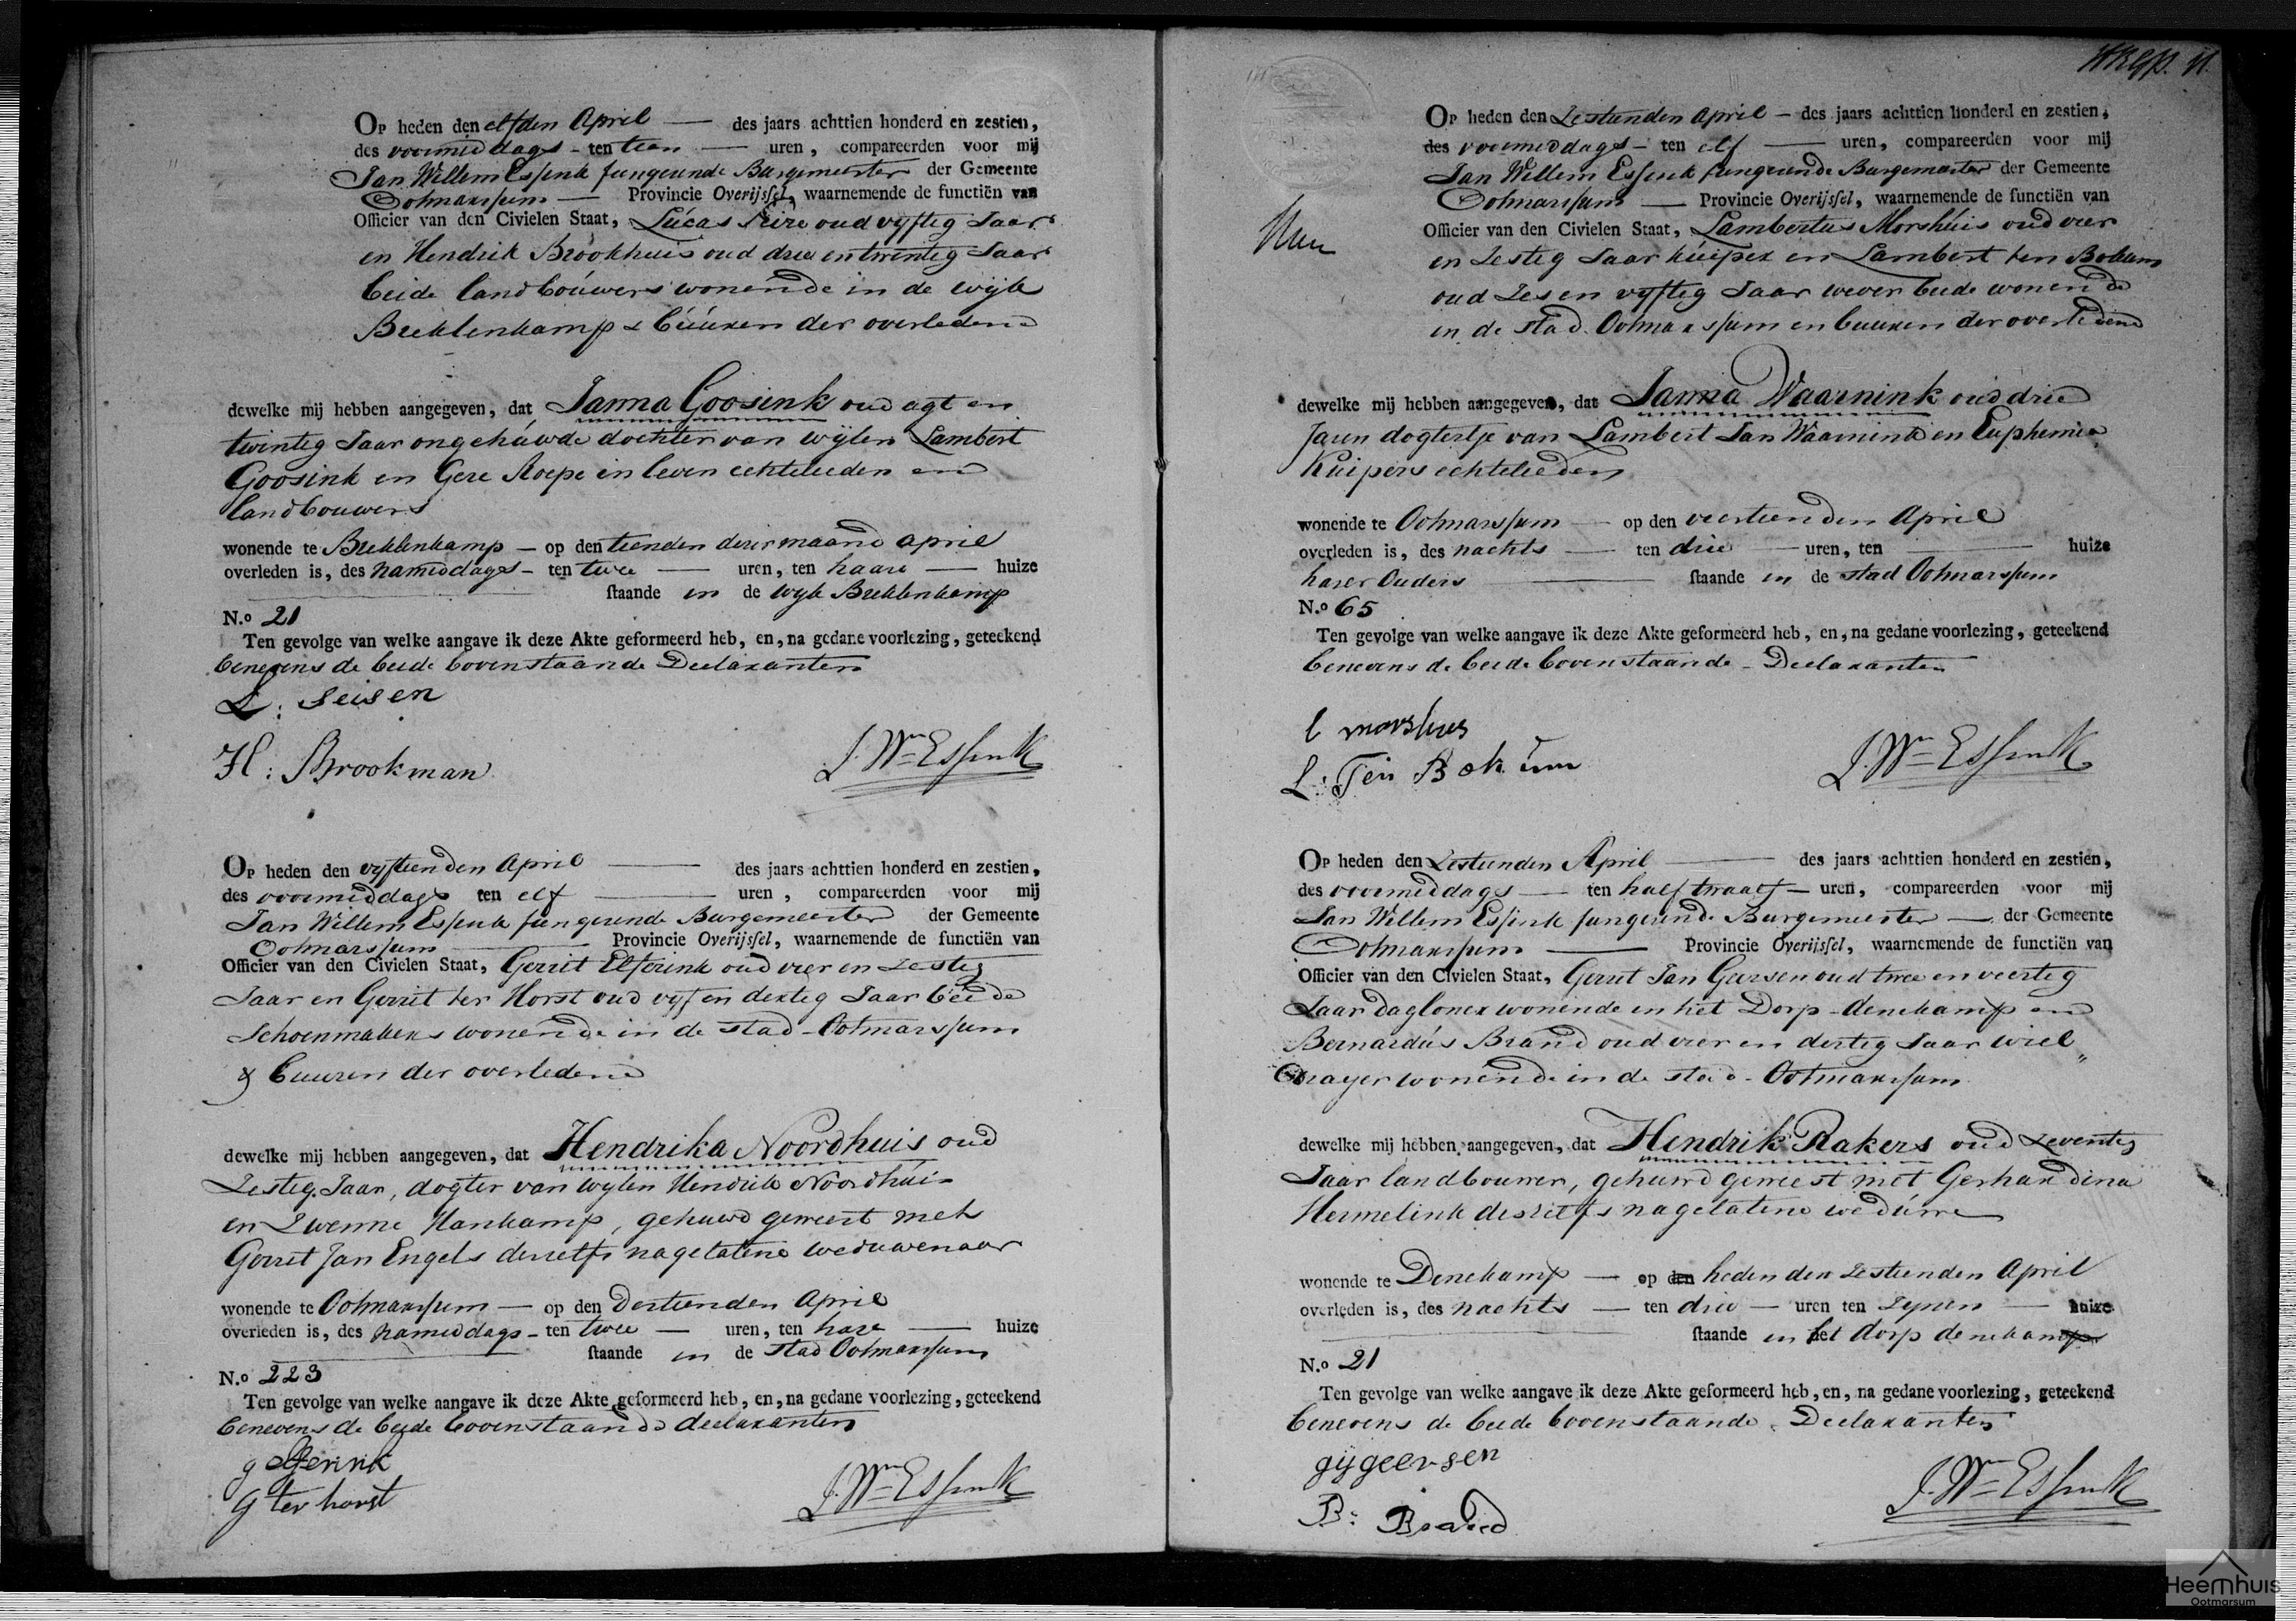 Op heden den elfden April — des jaars achttien honderd en zestien,
des voormiddags - ten tien — uren, compareerden voor mij
Jan Willem Essink fungerende Burgemeester der Gemeente
Ootmarssum — Provincie Overijssel, waarnemende de functiën van
Officier van den Civielen Staat, Lucas oud vyftig Jaar
en Hendrik Brookhuis oud drie en twintig Jaar
beide landbouwers wonende in de wijk
Breklenkamp & buuren der overledene
dewelke mij hebben aangegeven, dat Janna Goosink oud agt en
twintig Jaar ongehuwde dochter van wijlen Lambert
Goosink en Gere Roepe in leven echtelieden en
landbouwers
wonende te Breklenkamp — op den tienden dezer maand april
overleden is, des namiddags - ten twee — uren, ten haare — huize
staande in de wyk Breklenkamp
N.o 21
Ten gevolge van welke aangave ik deze Akte geformeerd heb, en, na gedane voorlezing, geteekend
benevens de beide bovenstaande Declaranten
L: Seisen
H: Brookman
J. Wm Essink
Op heden den vyftienden April — des jaars achttien honderd en zestien,
des voormiddags ten elf — uren, compareerden voor mij
Jan Willem Essink fungerende Burgemeester der Gemeente
Ootmarssum — Provincie Overijssel, waarnemende de functiën van
Officier van den Civielen Staat, Gerrit Elferink oud vier en zestig
Jaar en Gerrit ter Horst oud vyf en dertig Jaar beide
Schoenmakers wonende in de stad Ootmarssum
& buuren der overledene
dewelke mij hebben aangegeven, dat Hendrika Noordhuis oud
zestig Jaar, dogter van wylen Hendrik Noordhuis
en Zwenne Hankamp, gehuwd geweest met
Gerrit Jan Engels derzelfs nagelatene weduwenaar
wonende te Ootmarssum — op den dertienden April
overleden is, des namiddags - ten twee — uren, ten hare — huize
staande in de stad Ootmarssum
N.o 223
Ten gevolge van welke aangave ik deze Akte geformeerd heb, en, na gedane voorlezing, geteekend
benevens de beide bovenstaande declaranten
g elferink
G ter horst
J. Wm Essink
11
Op heden den Zestienden April — des jaars achttien honderd en zestien,
des voormiddags — ten elf — uren, compareerden voor mij
Jan Willem Essink fungerende Burgemeester der Gemeente
Ootmarssum — Provincie Overijssel, waarnemende de functiën van
Officier van den Civielen Staat, Lambertus Morshuis oud vier
en zestig Jaar kuiper en Lambert ten Bokum
oud zes en vyftig Jaar wever beide wonende
in de stad Ootmarssum en buuren der overledene
dewelke mij hebben aangegeven, dat Janna Waarnink oud drie
Jaren dogtertje van Lambert Jan Waarnink en Euphemia
Kuipers echtelieden
wonende te Ootmarssum — op den veertienden April
overleden is, des nachts — ten drie — uren, ten — huize
harer Ouders — staande in de stad Ootmarssum
N.o 65
Ten gevolge van welke aangave ik deze Akte geformeerd heb, en, na gedane voorlezing, geteekend
benevens de beide bovenstaande - Declaranten
l morshuis
L: Ten Bokum
J. Wm Essink
Op heden den Zestienden April — des jaars achttien honderd en zestien,
des voormiddags — ten half twaalf — uren, compareerden voor mij
Jan Willem Essink fungerende Burgemeester — der Gemeente
Ootmarssum — Provincie Overijssel, waarnemende de functiën van
Officier van den Civielen Staat, Gerrit Jan Geersen oud twee en veertig
Jaar dagloner wonende in het Dorp denekamp en
Bernardus Brand oud vier en dertig Jaar wiel
drayer wonende in de stad - Ootmarssum
dewelke mij hebben aangegeven, dat Hendrik Rakers oud zeventig
Jaar landbouwer, gehuwd geweest met Gerhardina
Hermelink deszelfs nagelatene weduwe
wonende te Denekamp — op den heden den zestienden April
overleden is, des nachts — ten drie — uren ten zynen — huize
staande in het dorp denekamp
N.o 21
Ten gevolge van welke aangave ik deze Akte geformeerd heb, en, na gedane voorlezing, geteekend
benevens de beide bovenstaande Declaranten
gijgeersen
B: Brand
J. Wm Essink
Heemhuis
Ootmarsum